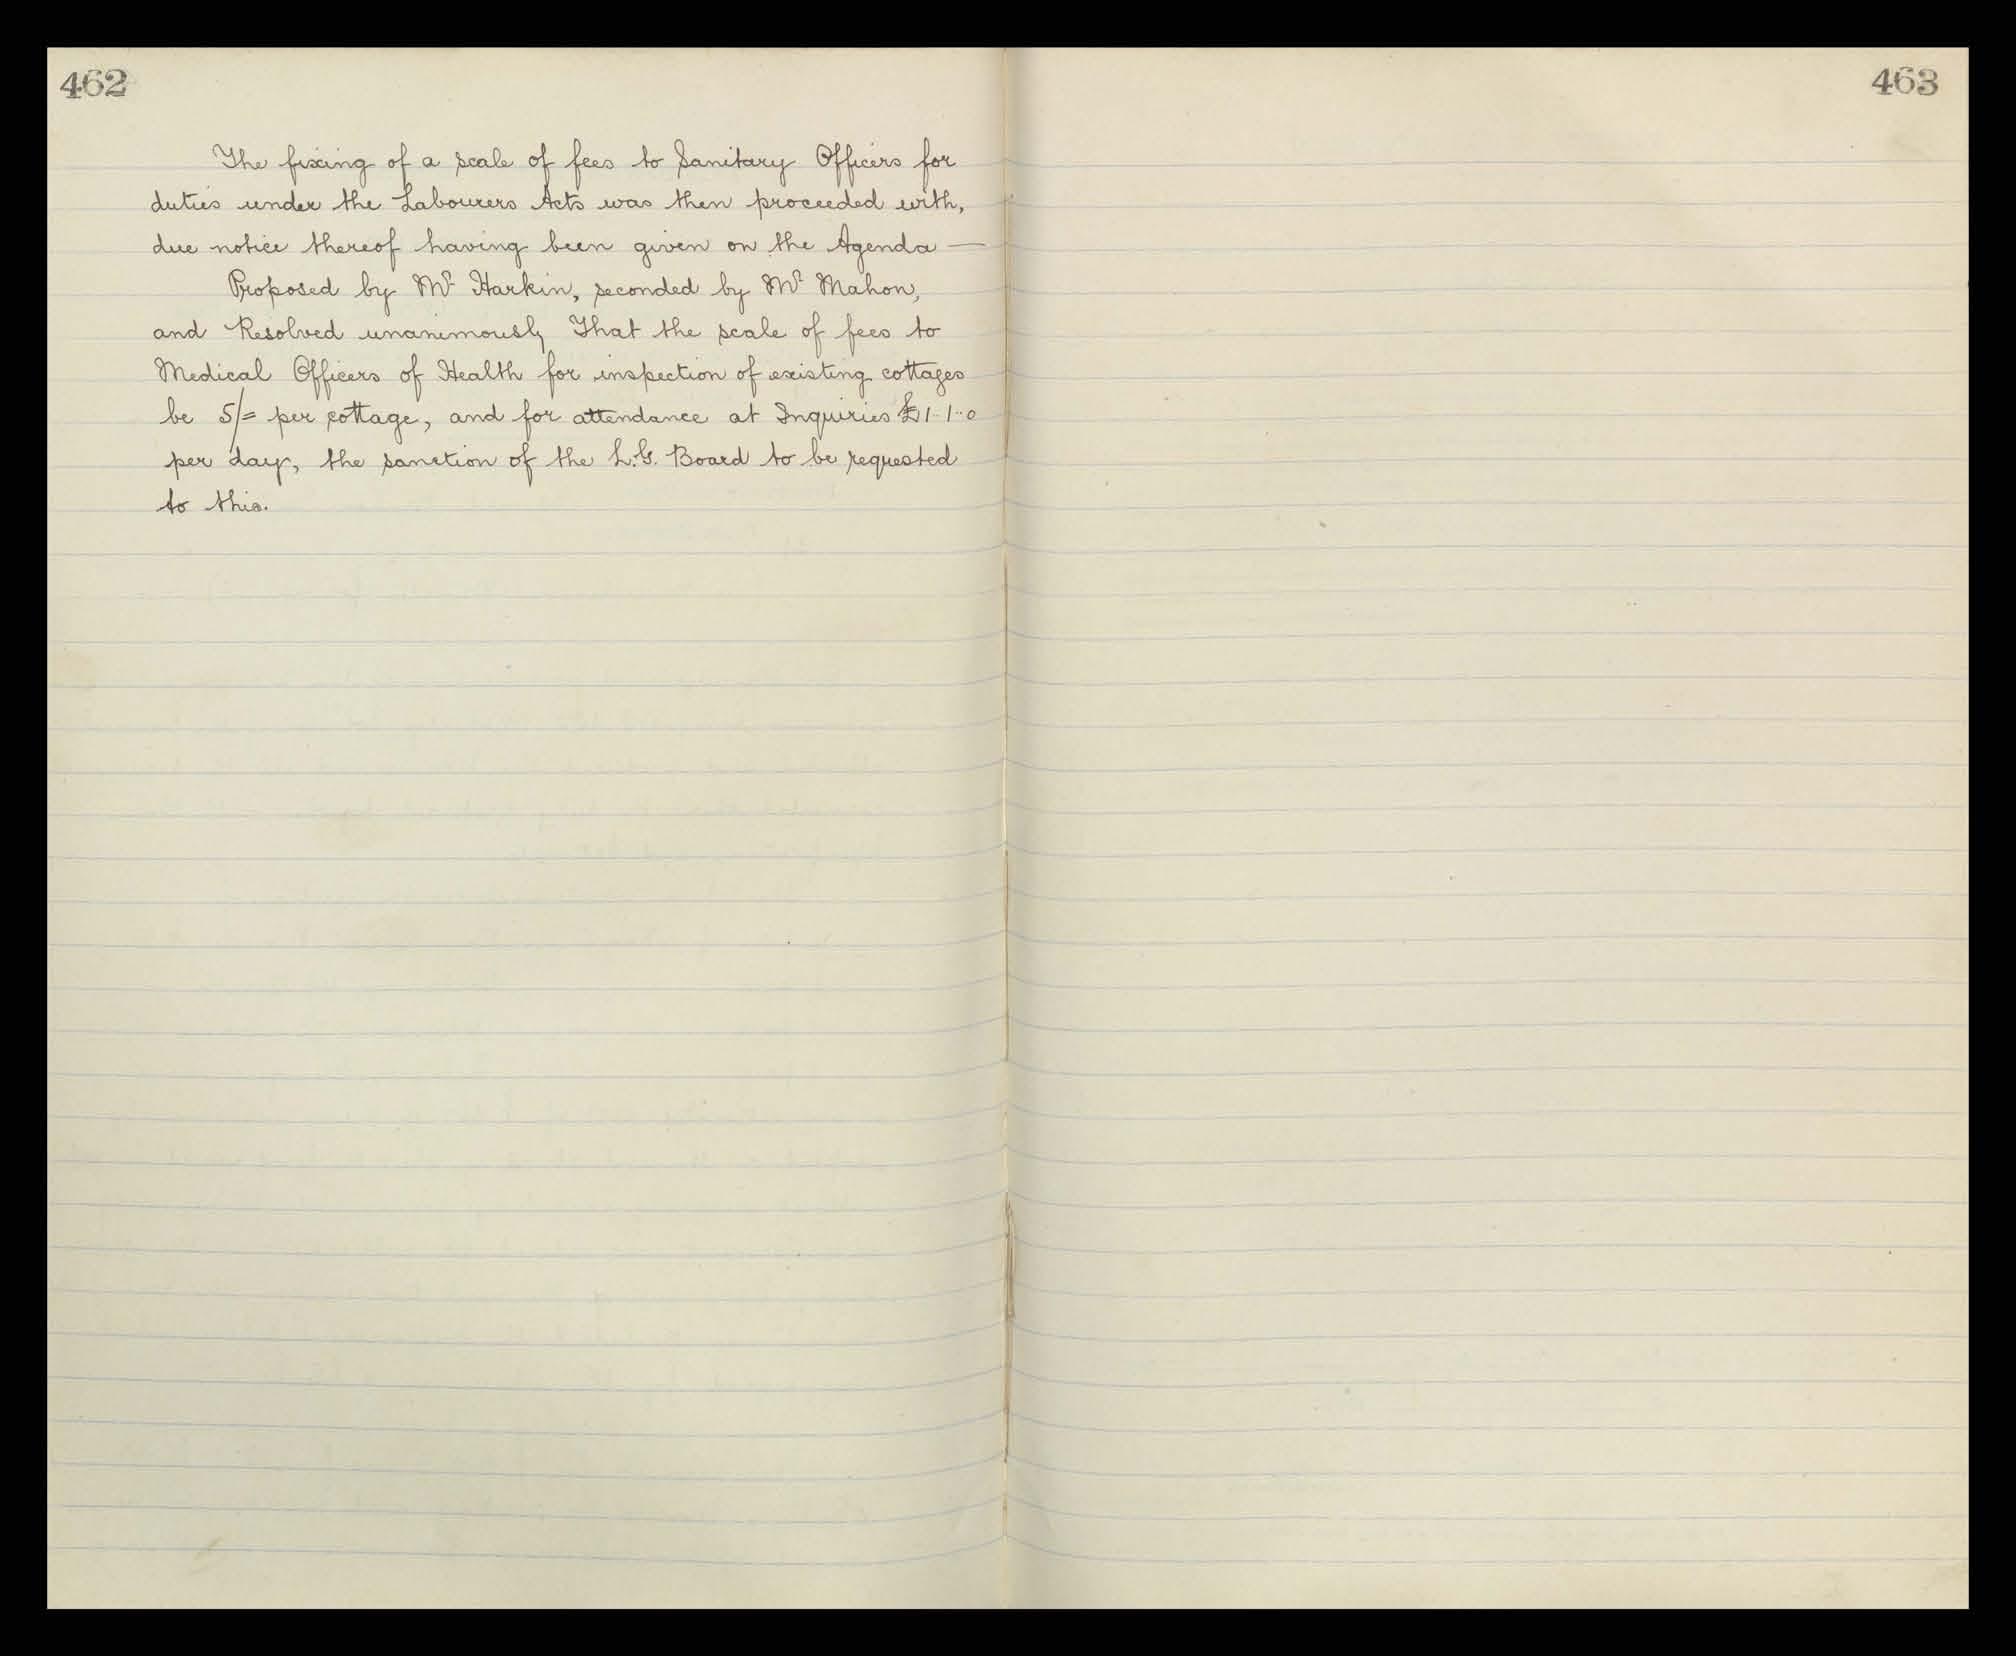 462
The fixing of a scale of fees to Sanitary Officers for
duties under the Labourers Acts was then proceeded with,
due notice thereof having been given on the Agenda —
Proposed by Mr Harkin, seconded by Mr Mahon,
and Resolved unanimously That the scale of fees to
Medical Officers of Health for inspection of existing cottages
be 5/= per cottage, and for attendance at Inquiries £1-1-0
per day, the sanction of the L.G. Board to be requested
to this.
463